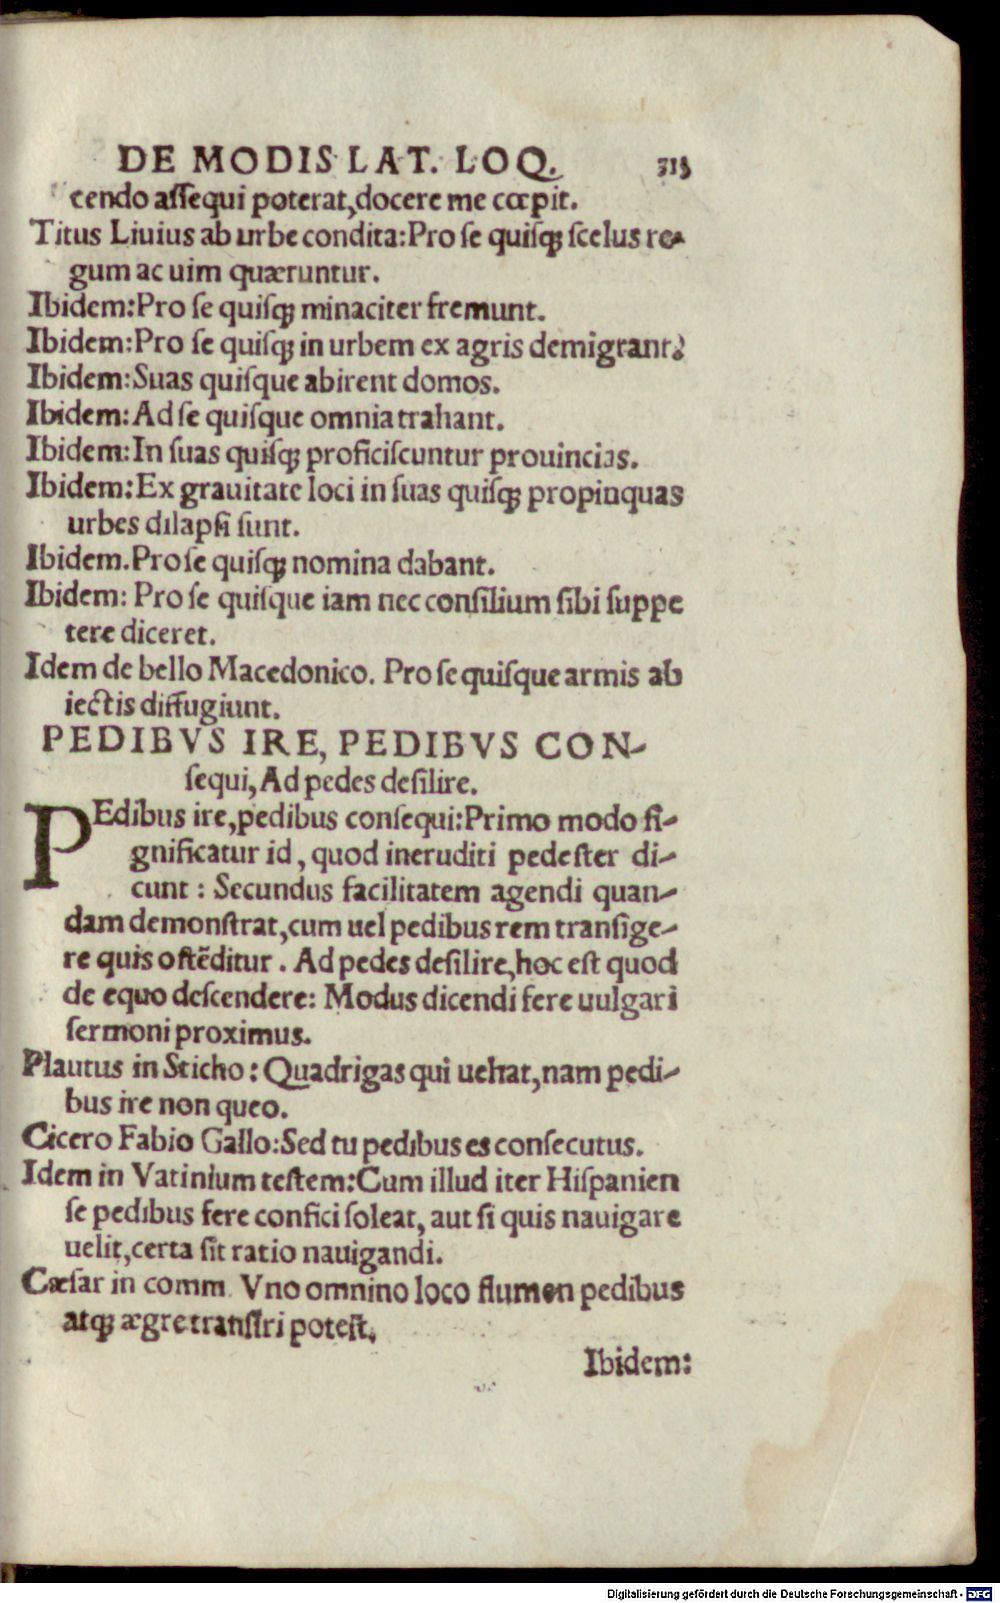 DE MODIS LAT. LOQ. 313
cendo assequi poterat, docere me cœpit.
Titus Liuius ab urbe condita: Pro se quisqꝫ scelus re-
gum ac uim quæruntur.
Ibidem: Pro se quisqꝫ minaciter fremunt.
Ibidem: Pro se quisqꝫ in urbem ex agris demigrant?
Ibidem: Suas quisque abirent domos.
Ibidem: Ad se quisque omnia trahant.
Ibidem: In suas quisqꝫ proficiscuntur prouincias.
Ibidem: Ex grauitate loci in suas quisqꝫ propinquas
urbes dilapsi sunt.
Ibidem. Pro se quisqꝫ nomina dabant.
Ibidem: Pro se quisque iam nec consilium sibi suppe
tere diceret.
Idem de bello Macedonico. Pro se quisque armis ab
iectis diffugiunt.
PEDIBVS IRE, PEDIBVS CON-
sequi, Ad pedes desilire.
PEdibus ire, pedibus consequi: Primo modo si-
gnificatur id, quod ineruditi pedester di-
cunt: Secundus facilitatem agendi quan-
dam demonstrat, cum uel pedibus rem transige-
re quis ostẽditur. Ad pedes desilire, hoc est quod
de equo descendere: Modus dicendi fere uulgari
sermoni proximus.
Plautus in Sticho: Quadrigas qui uehat, nam pedi-
bus ire non queo.
Cicero Fabio Gallo: Sed tu pedibus es consecutus.
Idem in Vatinium testem: Cum illud iter Hispanien
se pedibus fere confici soleat, aut si quis nauigare
uelit, certa sit ratio nauigandi.
Cæsar in comm. Vno omnino loco flumen pedibus
atqꝫ ægre transiri potest.
Ibidem:
Digitalisierung gefördert durch die Deutsche Forschungsgemeinschaft - DFG